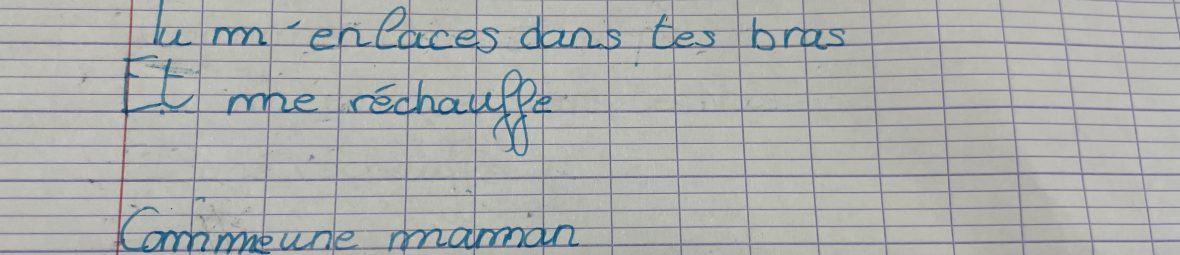 Tu m'enlaces dans tes bras
Et me réchauffe
Comme une maman